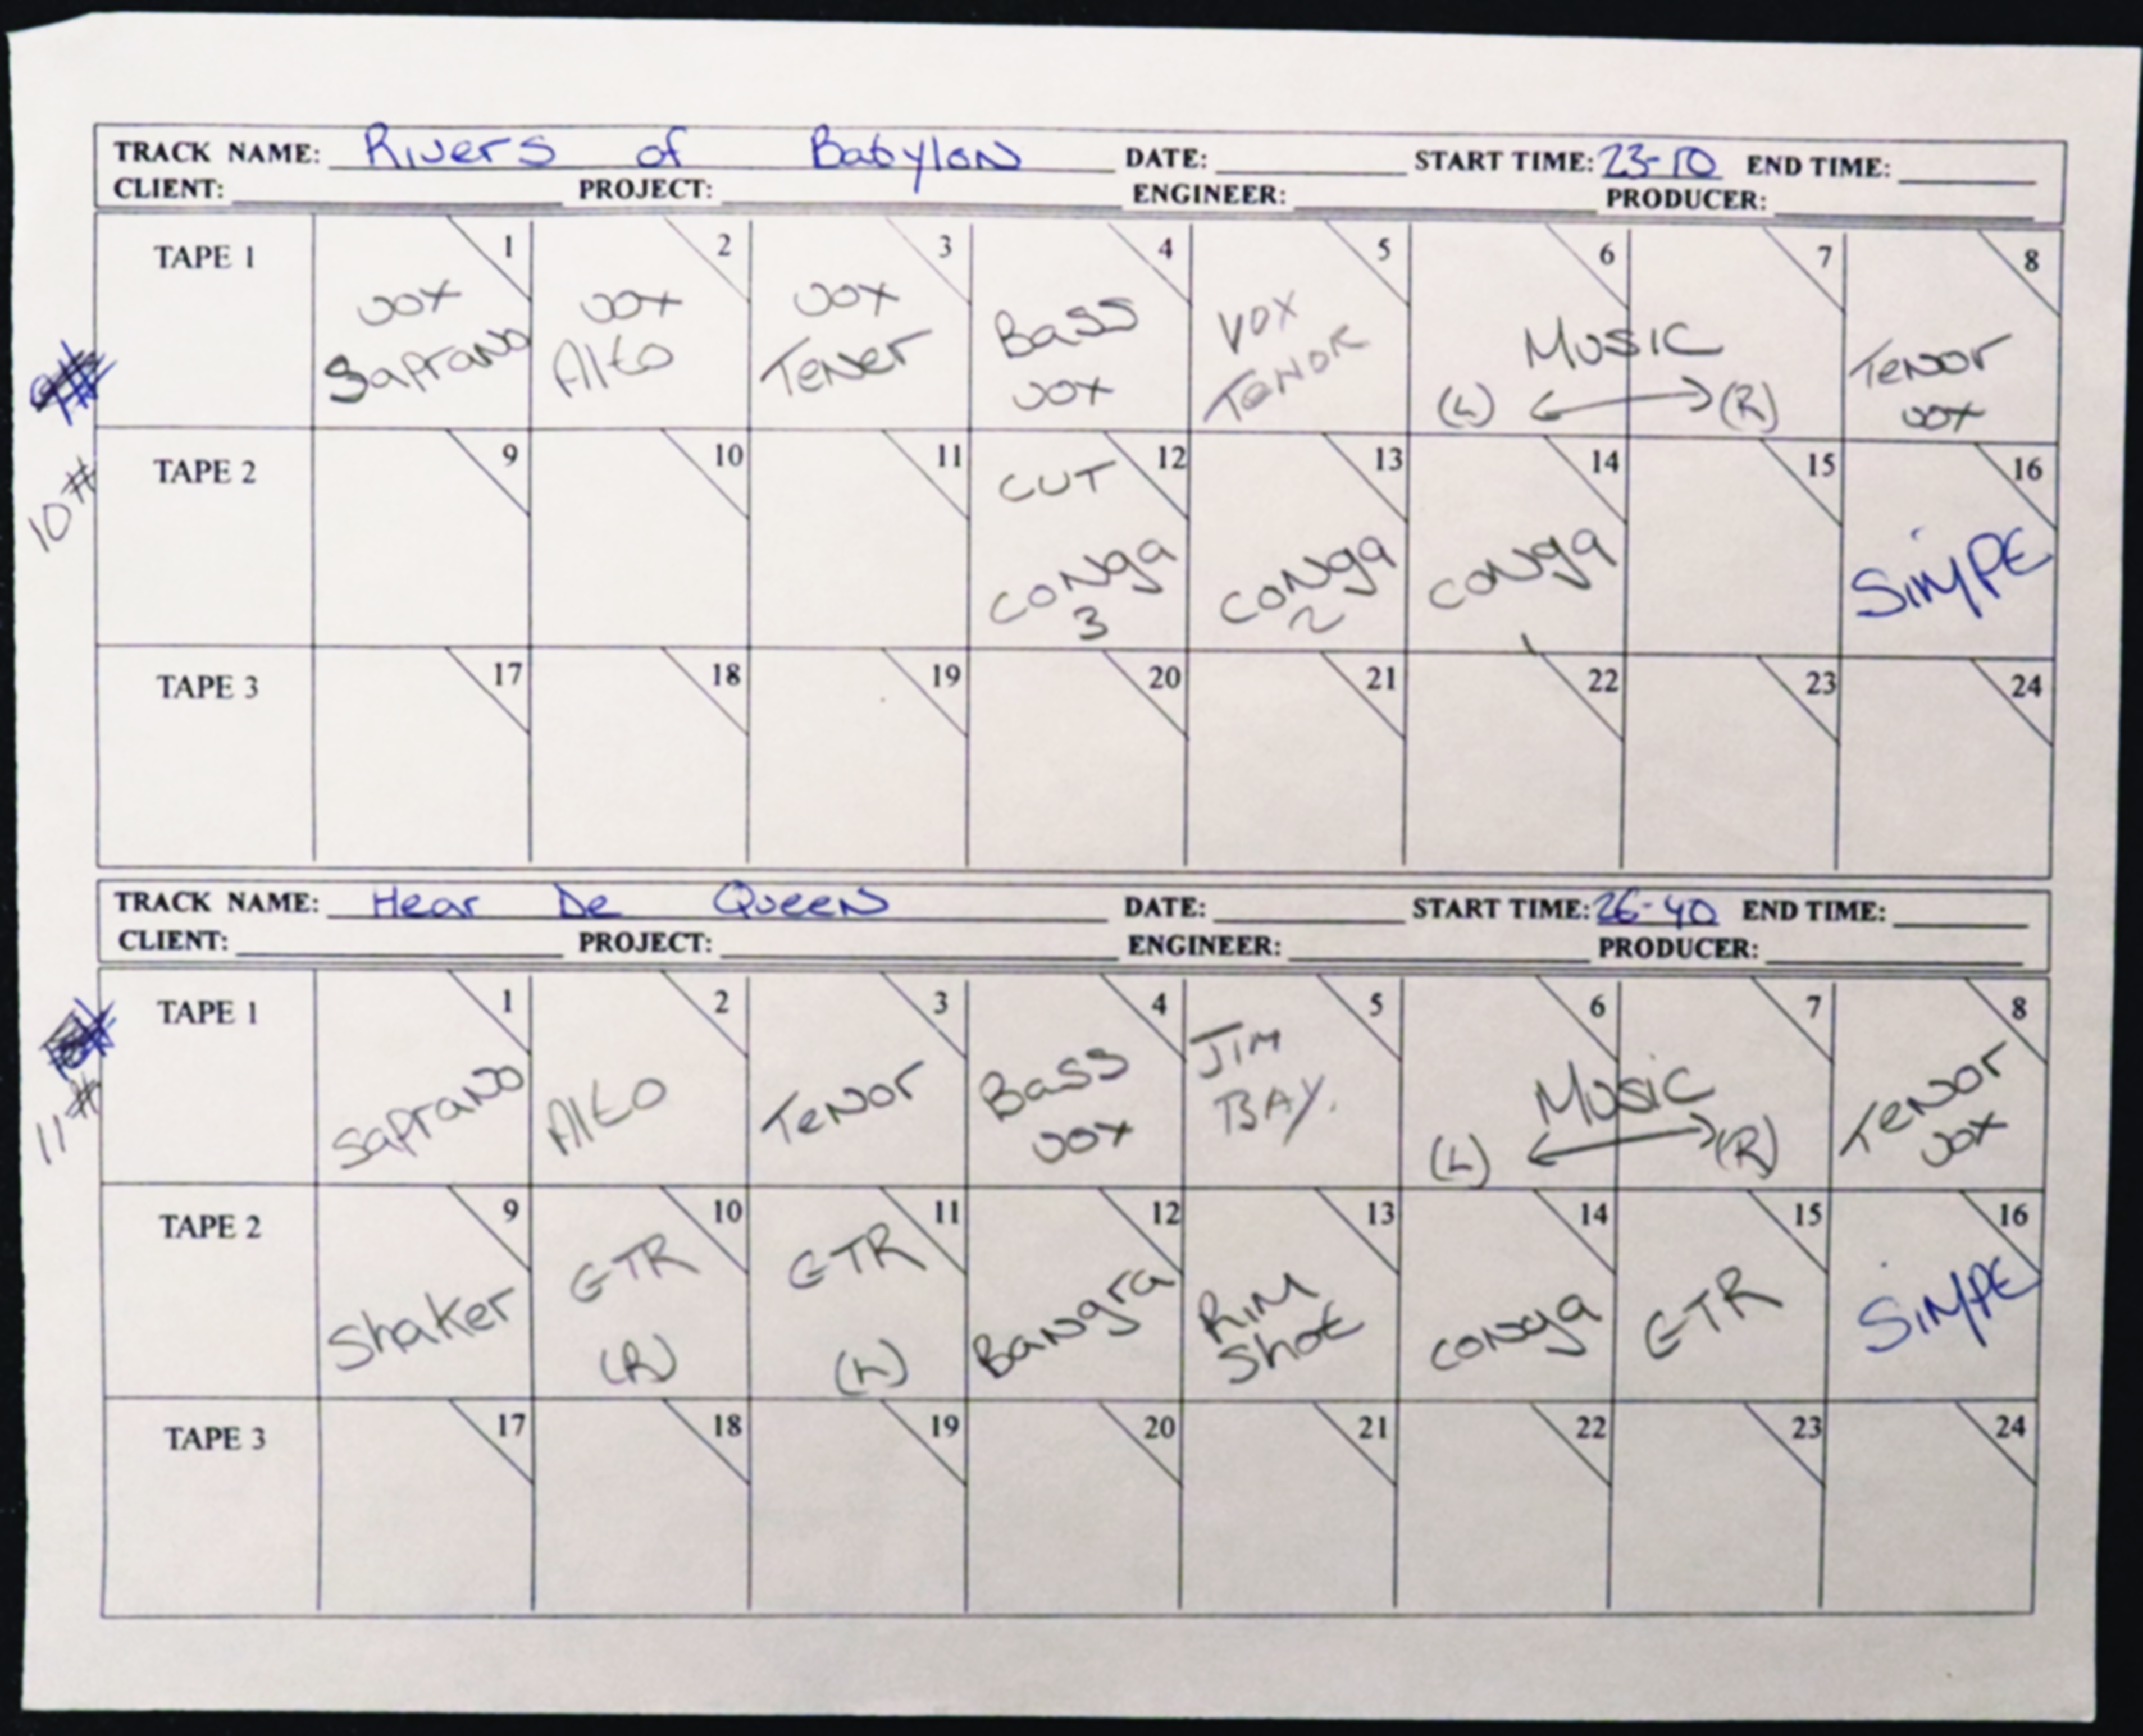 TRACK NAME: Rivers of Babylon DATE: START TIME: 23-10 END TIME:
CLIENT: PROJECT: ENGINEER: PRODUCER:
TAPE 1
1 vox Saprano
2 vox Alto
3 vox Tener
4 Bass vox
5 VOX TENOR
6 7 Music (L) (R)
8 Tenor vox
10#
TAPE 2
9
10
11
12 CUT Conga 3
13 Conga 2
14 Conga 1
15
16 SIMPE
TAPE 3
17
18
19
20
21
22
23
24
TRACK NAME: Hear De Queen DATE: START TIME: 26-40 END TIME:
CLIENT: PROJECT: ENGINEER: PRODUCER:
11#
TAPE 1
1 Saprano
2 Alto
3 Tenor
4 Bass vox
5 JIM BAY.
6 7 Music (L) (R)
8 Tenor vox
TAPE 2
9 Shaker
10 GTR (R)
11 GTR (L)
12 Bangra
13 Rim Shot
14 Conga
15 GTR
16 SIMPE
TAPE 3
17
18
19
20
21
22
23
24